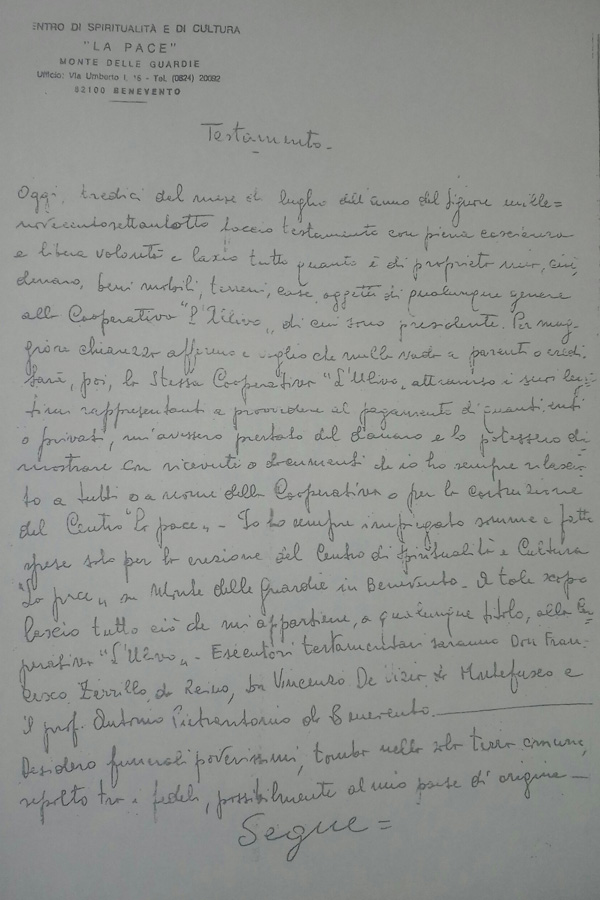 ENTRO DI SPIRITUALITÀ E DI CULTURA
"LA PACE"
MONTE DELLE GUARDIE
Ufficio: Via Umberto I, 16 - Tel. (0824) 20092
82100 BENEVENTO
Testamento -
Oggi, tredici del mese di luglio dell'anno del Signore mille=
novecentosettantotto faccio testamento con piena coscienza
e libera volontà e lascio tutto quanto è di proprietà mia, cioè,
denaro, beni mobili, terreni, case, oggetti di qualunque genere
alla Cooperativa "L'Ulivo", di cui sono presidente. Per mag-
giore chiarezza affermo e voglio che nulla vada a parenti o eredi.
Sarà, poi, la Stessa Cooperativa "L'Ulivo", attraverso i suoi legit=
timi rappresentanti a provvedere al pagamento di quanti, enti
o privati, m'avessero prestato del danaro e lo potessero di-
mostrare con ricevute o documenti che io ho sempre rilascia-
to a tutti o a nome della Cooperativa o per la costruzione
del Centro "La pace" - Io ho sempre impiegato somme e fatte
spese solo per la erezione del Centro di Spiritualità e Cultura
"La pace" su Monte delle Guardie in Benevento - A tale scopo
lascio tutto ciò che mi appartiene, a qualunque titolo, alla Coo-
perativa "L'Ulivo" - Esecutori testamentari saranno Don Fran-
cesco Zerrillo da Reino, Vincenzo De da Montefusco e
il prof. Antonio Pietrantonio da Benevento.
Desidero funerali poverissimi, tomba nella sola terra comune,
sepolto tra i fedeli, possibilmente al mio paese di origine -
Segue =